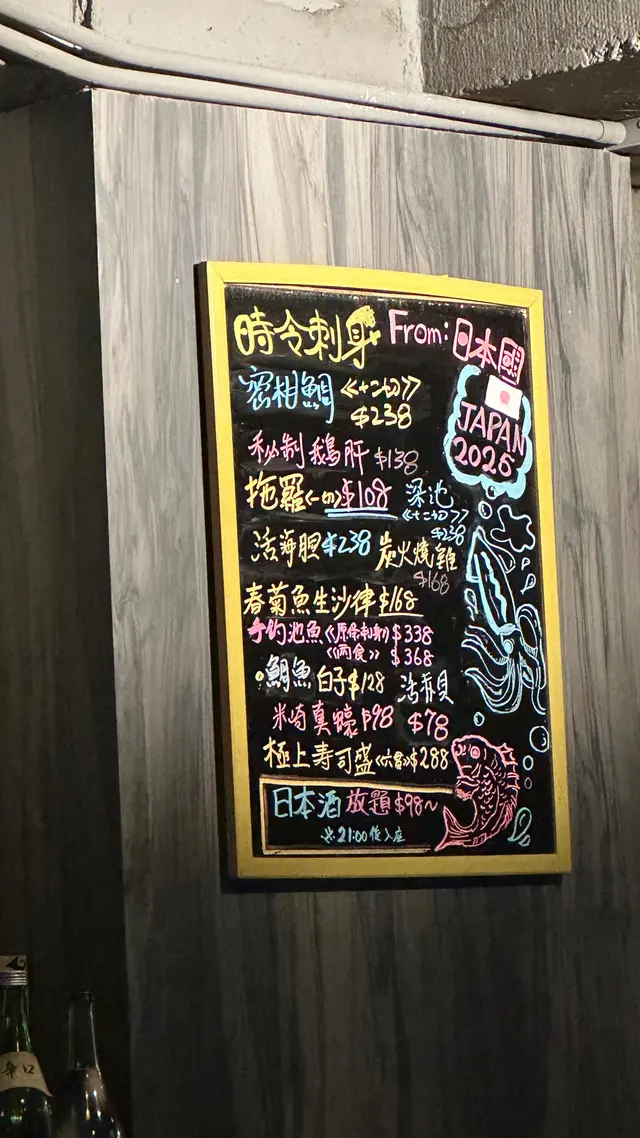 時令刺身 From: 日本國
密柑鯛 <<十二切>>
$238
JAPAN
2025
秘制鵝肝 $138
拖羅<一切>$108 深池
<<十二切>>
$238
活海胆 $238 炭火燒雞
$168
春菊魚生沙律 $168
手釣池魚 <<原條刺身>> $338
<<兩食>> $368
鯛魚白子 $128 活赤貝
米崎真蠔 $98 $78
極上寿司盛 <六貫> $288
日本酒放題 $98~
※21:00後入座
辛口